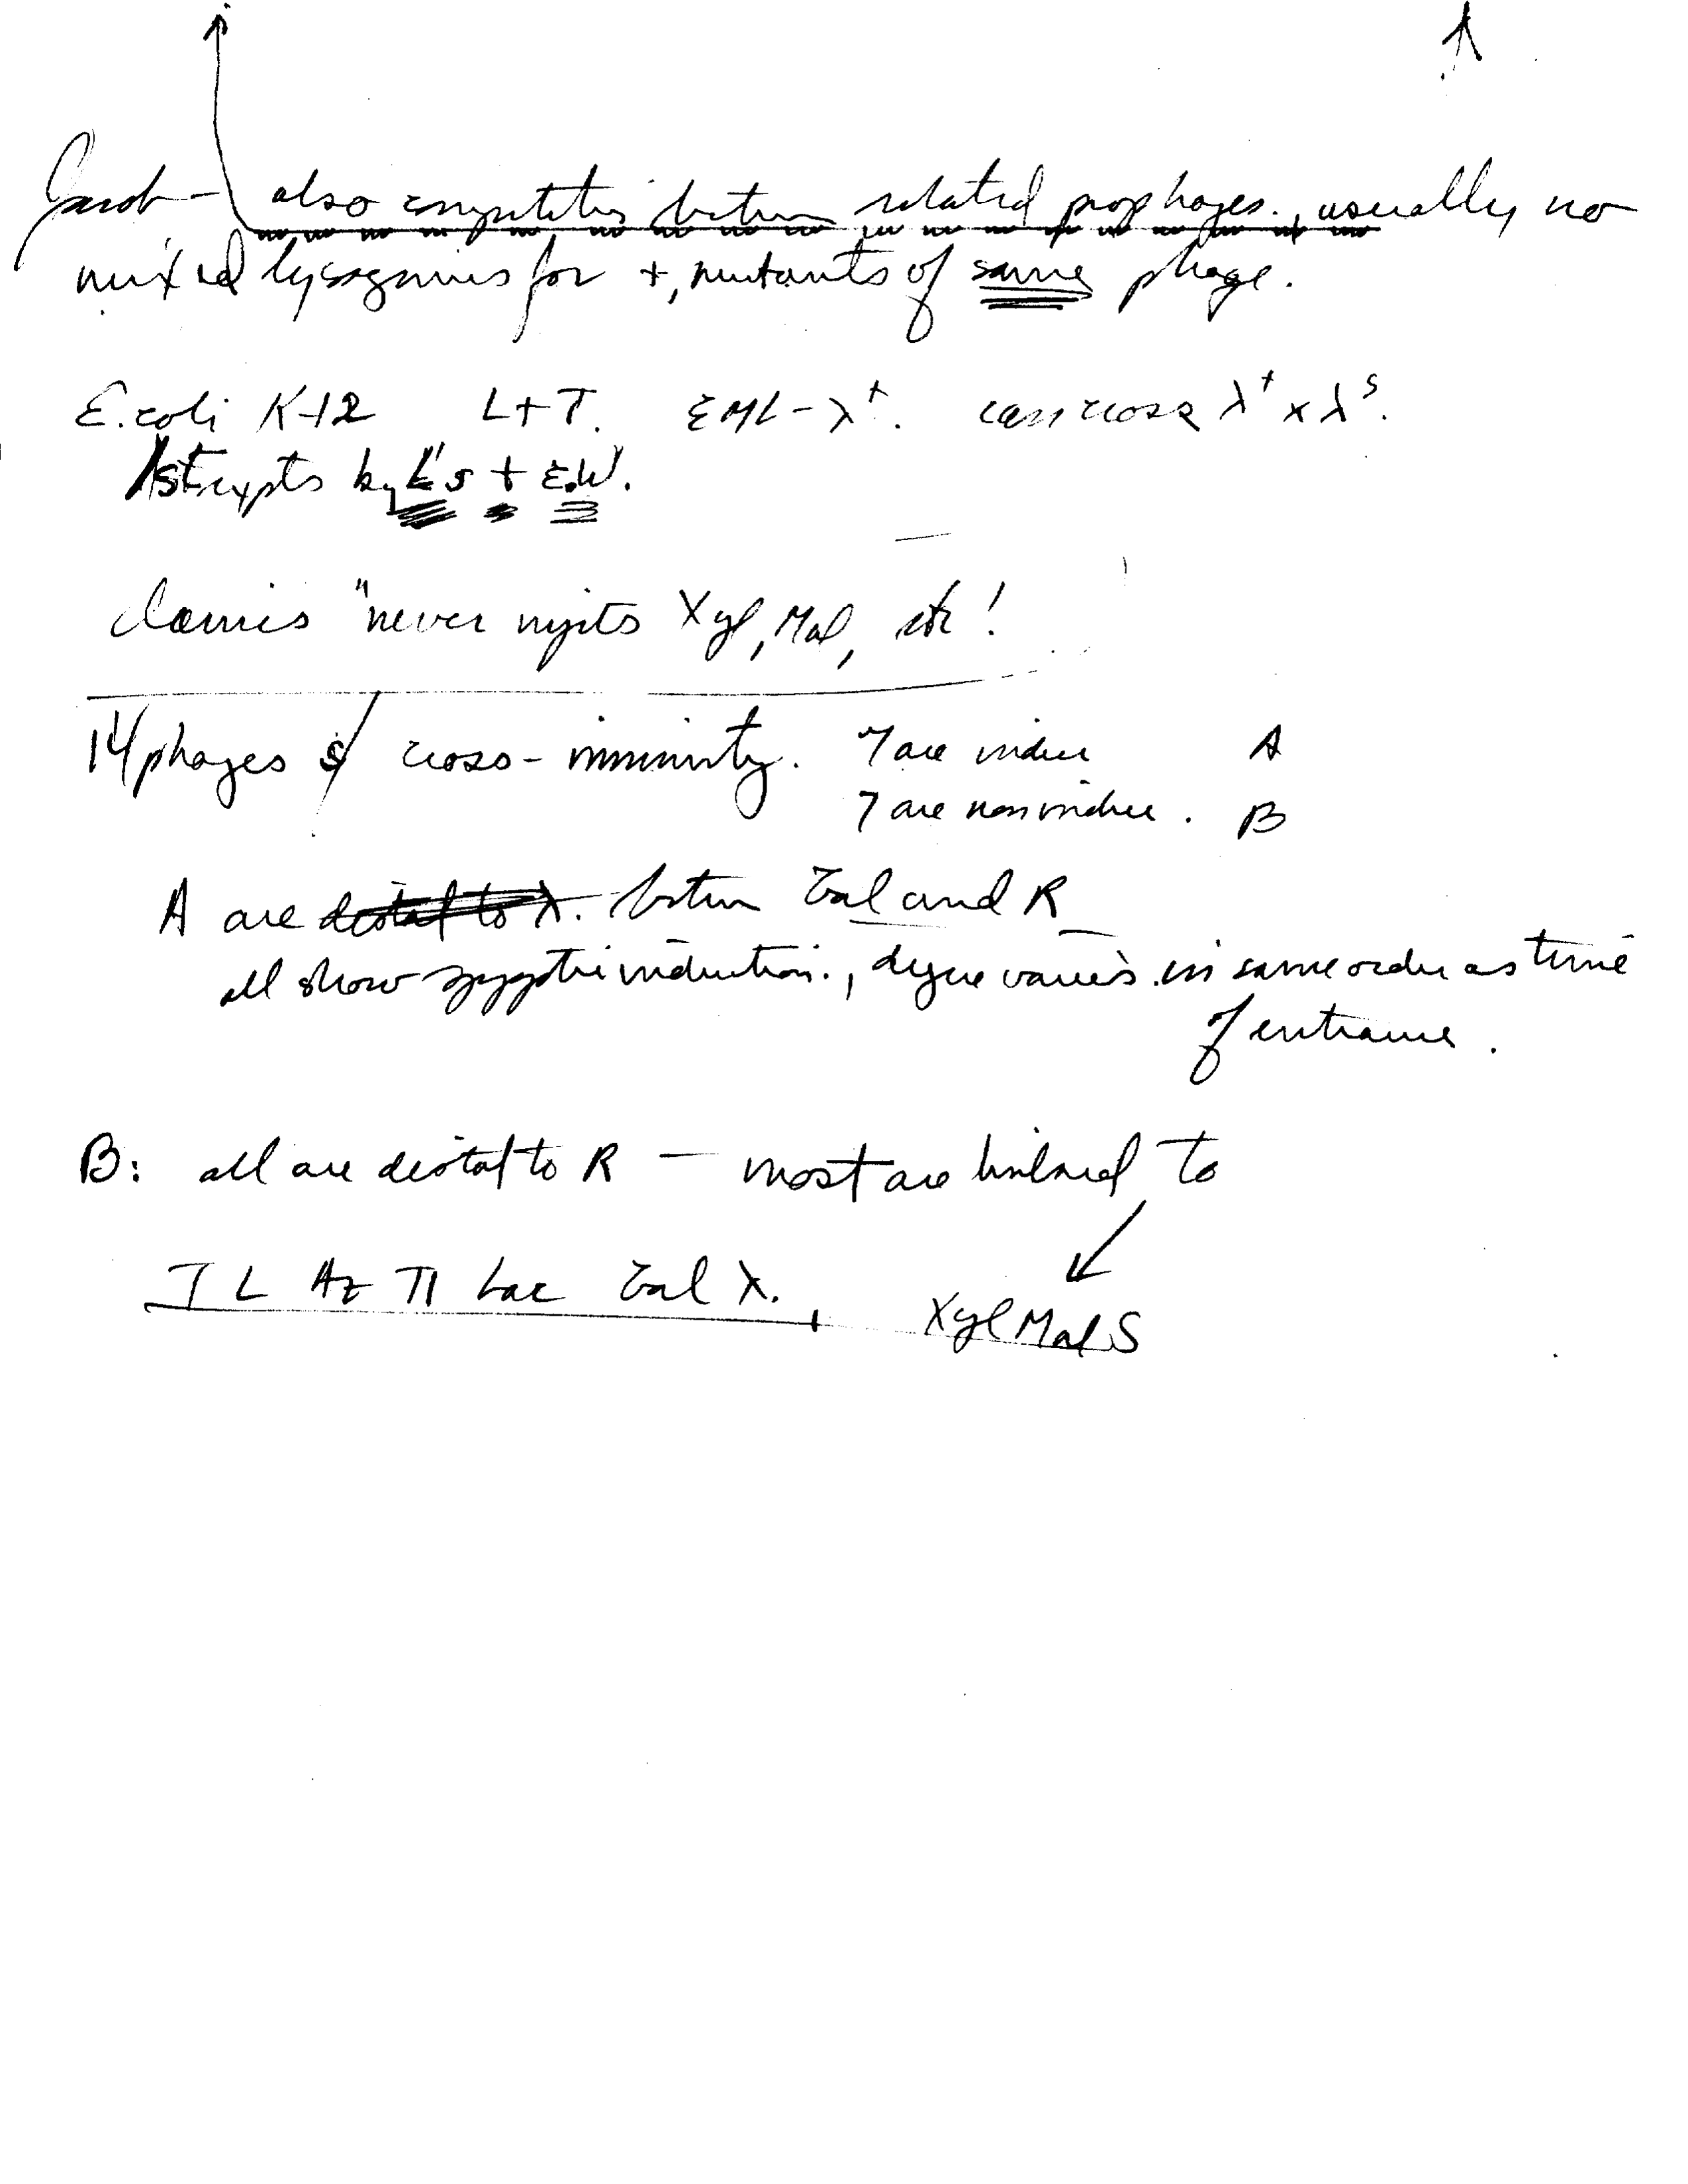 Jacob — also competition between related prophages., usually no
mixed lysogenics for +, mutants of same phage.
E. coli K-12 L+T. EML - λ⁺. can cross λ⁺ x λˢ.
by L's + E.W.
claims "never injects Xyl, Mal, etc!
14 phages s/ cross-immunity. 7 are induc A
7 are noninduc. B
A are distal to λ. between Gal and R
all show zygotic induction., degree varies in same order as time
of entrance.
B: all are distal to R — most are linked to
T L Az T1 Lac Gal λ. Xyl Mal S